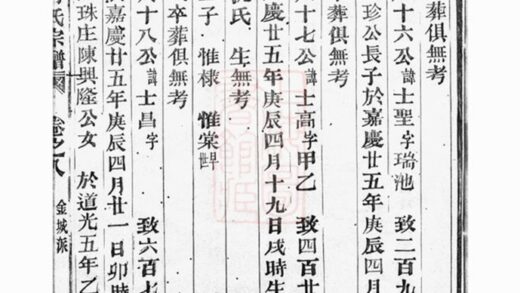 葬俱無考
十六公諱士聖字瑞池 致二百九
珍公長子於嘉慶廿五年庚辰四月
葬俱無考
十七公諱士高字甲乙 致四百廿
嘉慶廿五年庚辰四月十九日戌時生
氏 生無考
子 惟棣 惟棠
卒葬俱無考
十八公諱士昌字 致六百七
嘉慶廿五年庚辰四月廿一日卯時
珠庄陳興隆公女 於道光五年乙
氏宗譜 卷之八 金城派